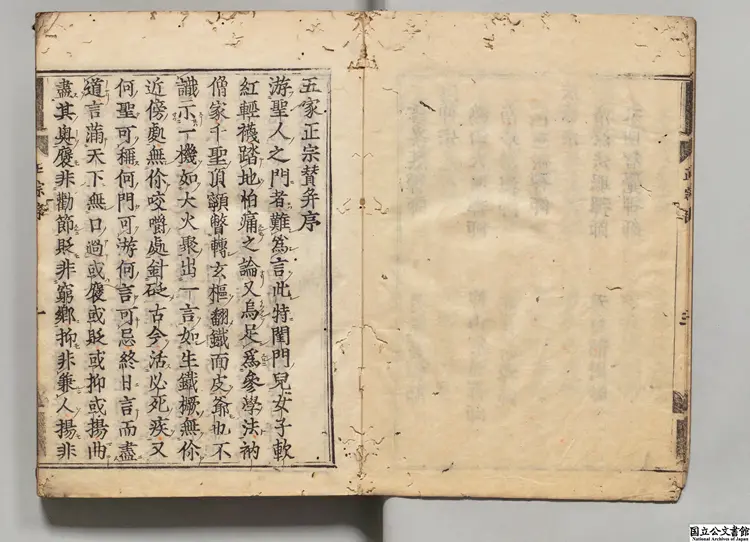 五家正宗賛并序
游聖人之門者難爲言此特閨門兒女子軟
紅輕襪踏地怕痛之論又烏足爲參學法衲
僧家千聖頂𩕳瞥轉玄樞翻鐵面皮爺也不
識示一機如大火聚出一言如生鐵橛無你
近傍處無你咬嚼處針砭古今活必死疾又
何聖可稱何門可游何言可忌終日言而盡
道言滿天下無口過或褒或貶或抑或揚曲
盡其奧褒非勸節貶非窮鄉抑非兼人揚非
正宗序
一
国立公文書館
National Archives of Japan